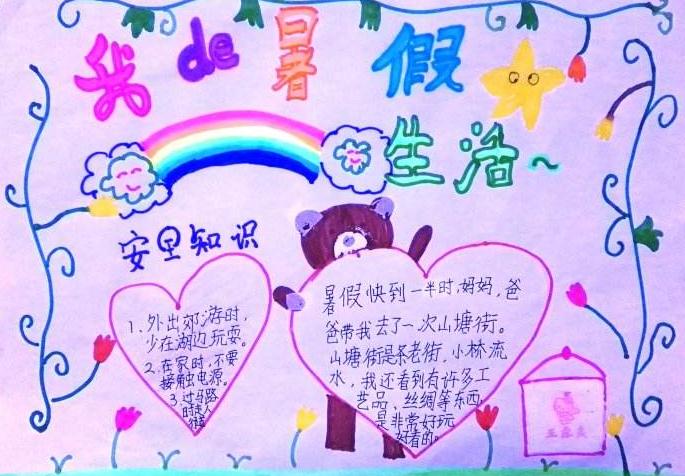 我de暑假
生活~
安里知识
1、外出郊游时,
少在湖边玩耍。
2、在家时,不要
接触电源。
3、过马路
时走人
暑假快到一半时,妈妈,爸
爸带我去了一次山塘街。
山塘街是条老街,小桥流
水,我还看到有许多工
艺品、丝绸等东西,
是非常好玩
好看的。